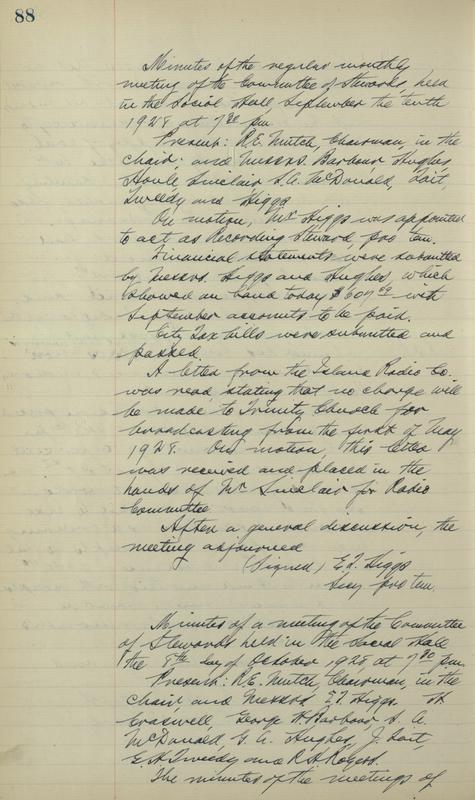 88
Minutes of the regular monthly
meeting of the Committee of Stewards, held
in the Social Hall, September the tenth
1928 at 7.30 pm.
Present: R.E. Mutch, Chairman, in the
chair; and Messrs. Barbour, Hughes
Houle, Sinclair, S.A. McDonald, Tait,
Tweedy and Higgs
On motion, Mr Higgs was appointed
to act as Recording Steward, pro tem.
Financial statements were submitted
by Messrs. Higgs and Hughes, which
showed on hand today with
September accounts to be paid.
City Tax bills were submitted and
passed.
A letter from the Island Radio Co.
was read stating that no charge will
be made to Trinity Church for
broadcasting from the first of May
1928. On motion, this letter
was received and placed in the
hands of Mr Sinclair for Radio
Committee
After a general discussion, the
meeting adjourned
(Signed) E.T. Higgs
Secy pro tem.
Minutes of a meeting of the Committee
of Stewards held in the Social Hall
the 8th day of October 1928 at 7.30 pm.
Present: R.E. Mutch, Chairman, in the
chair and Messrs E.T. Higgs.
Craswell, George H. Barbour S. A.
McDonald, G. A. Hughes, J. Tait,
E.H. Tweedy and R.H. Rogers.
The minutes of the meetings of